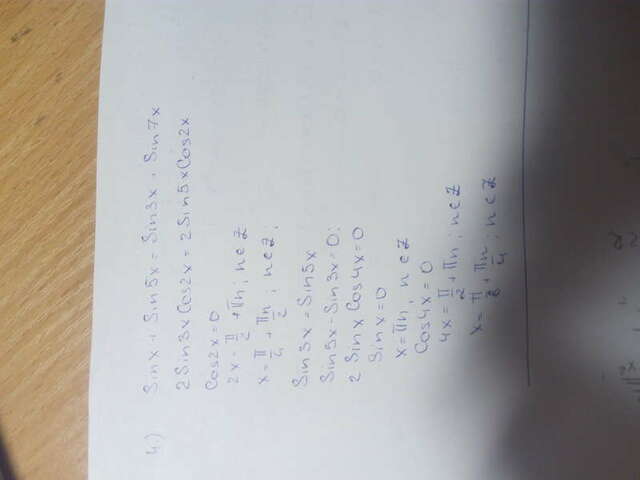 4.) Sinx + Sin5x = Sin3x + Sin7x
2Sin3xCos2x = 2Sin5xCos2x
Cos2x=0
2x = π/2 + πn; n∈Z
x = π/4 + πn/2; n∈Z;
Sin3x = Sin5x
Sin5x - Sin3x = 0;
2 Sinx Cos4x = 0
Sinx = 0
x = πn; n∈Z
Cos4x = 0
4x = π/2 + πn; n∈Z
x = π/8 + πn/4; n∈Z